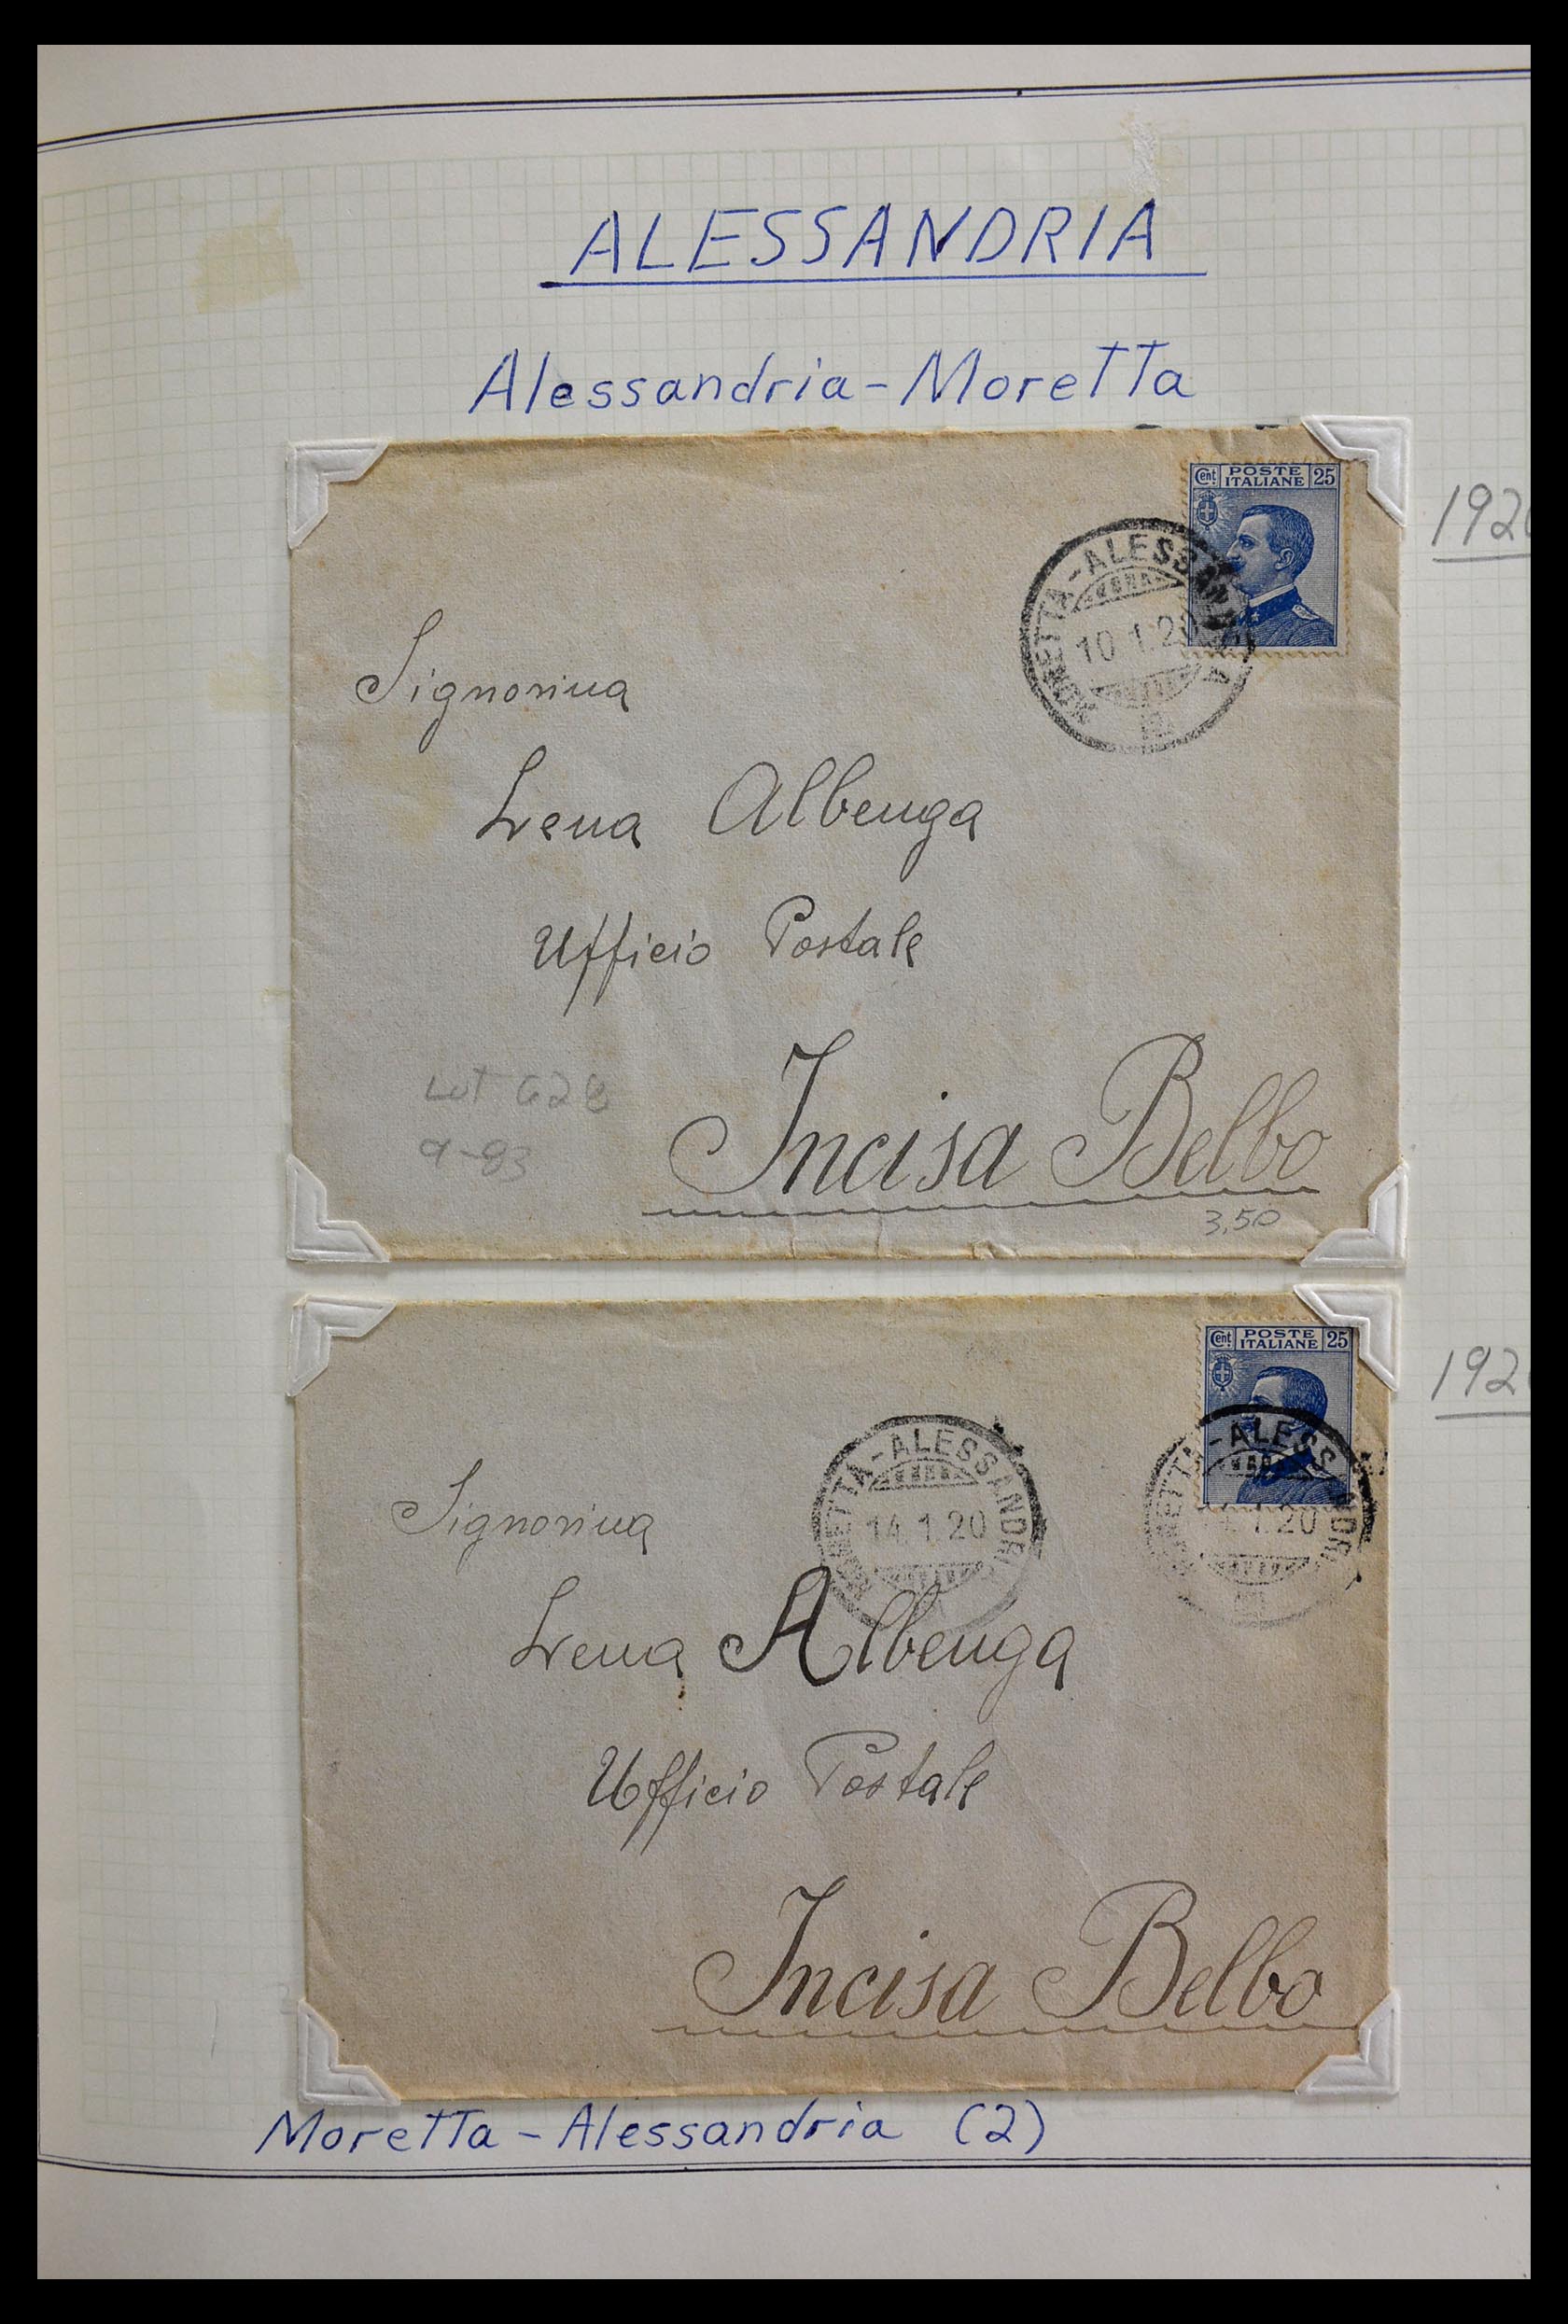 ALESSANDRIA
Alessandria-Moretta
Cent POSTE ITALIANE 25
192
MORETTA-ALESSAN
10.1.20
Signorina
Lena Albenga
Ufficio Postale
Lot 628
9-93
Incisa Belbo
3,50
Cent POSTE ITALIANE 25
192
MORETTA-ALESSANDRI
14.1.20
ETTA-ALESS NDRI
1.20
Signorina
Lena Albenga
Ufficio Postale
Incisa Belbo
Moretta-Alessandria (2)